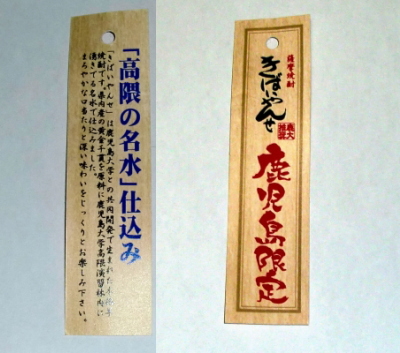 「高隈の名水」仕込み
「きばいやんせ」は鹿児島大学との共同開発で生まれた本格芋
焼酎です。県内産の黄金千貫を原料に鹿児島大学高隈演習林内に
湧きでる名水で仕込みました。
まろやかな口あたりと深い味わいをじっくりとお楽しみ下さい。
薩摩焼酎
きばいやんせ
鹿児島限定